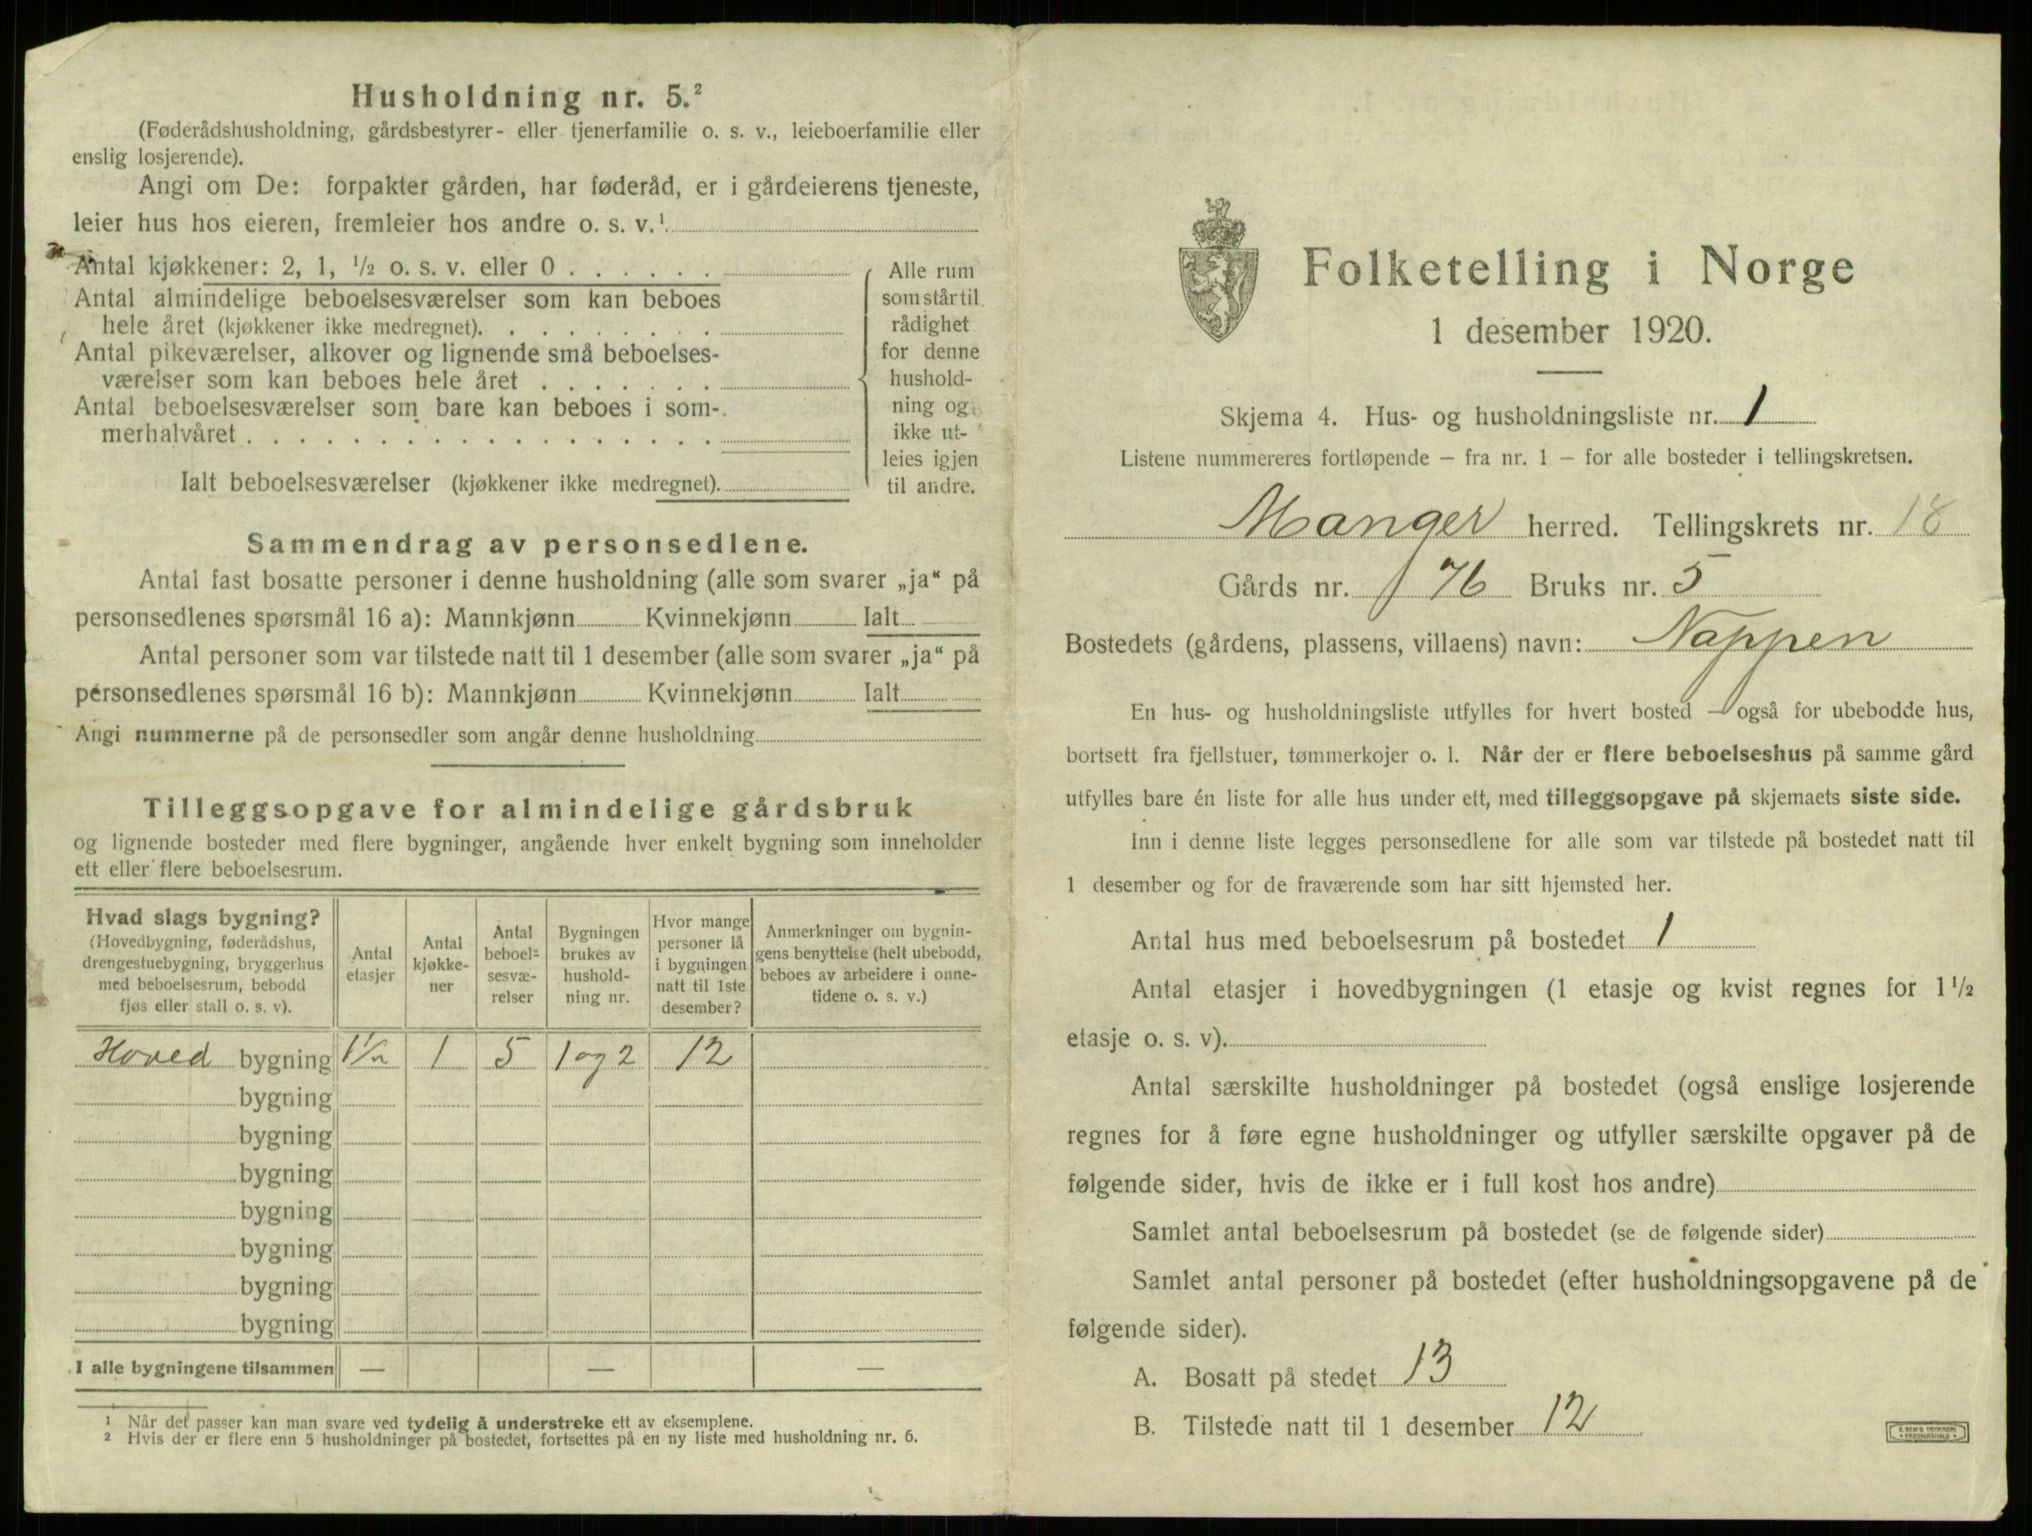 Husholdning nr. 5.²
(Føderådshusholdning, gårdsbestyrer- eller tjenerfamilie o. s. v., leieboerfamilie eller
enslig losjerende).
Angi om De: forpakter gården, har føderåd, er i gårdeierens tjeneste,
leier hus hos eieren, fremleier hos andre o. s. v.¹
Antal kjøkkener: 2, 1, ½ o. s. v. eller 0 . . . . . .
Antal almindelige beboelsesværelser som kan beboes
hele året (kjøkkener ikke medregnet). . . . . . . . .
Antal pikeværelser, alkover og lignende små beboelses-
værelser som kan beboes hele året . . . . . . .
Antal beboelsesværelser som bare kan beboes i som-
merhalvåret . . . . . . . . . . . . . . . . . .
Ialt beboelsesværelser (kjøkkener ikke medregnet).
Alle rum
som står til
rådighet
for denne
hushold-
ning og
ikke ut-
leies igjen
til andre.
Sammendrag av personsedlene.
Antal fast bosatte personer i denne husholdning (alle som svarer „ja“ på
personsedlenes spørsmål 16 a): Mannkjønn Kvinnekjønn Ialt
Antal personer som var tilstede natt til 1 desember (alle som svarer „ja“ på
personsedlenes spørsmål 16 b): Mannkjønn Kvinnekjønn Ialt
Angi nummerne på de personsedler som angår denne husholdning
Tilleggsopgave for almindelige gårdsbruk
og lignende bosteder med flere bygninger, angående hver enkelt bygning som inneholder
ett eller flere beboelsesrum.
Hvad slags bygning?
(Hovedbygning, føderådshus,
drengestuebygning, bryggerhus
med beboelsesrum, bebodd
fjøs eller stall o. s. v).
Antal
etasjer
Antal
kjøkke-
ner
Antal
beboel-
sesvæ-
relser
Bygningen
brukes av
hushold-
ning nr.
Hvor mange
personer lå
i bygningen
natt til 1ste
desember?
Anmerkninger om bygnin-
gens benyttelse (helt ubebodd,
beboes av arbeidere i onne-
tidene o. s. v.)
Hoved bygning 1½ 1 5 1 og 2 12
bygning
bygning
bygning
bygning
bygning
bygning
bygning
I alle bygningene tilsammen — — —
¹ Når det passer kan man svare ved tydelig å understreke ett av eksemplene.
² Hvis der er flere enn 5 husholdninger på bostedet, fortsettes på en ny liste med husholdning nr. 6.
Folketelling i Norge
1 desember 1920.
Skjema 4. Hus- og husholdningsliste nr. 1
Listene nummereres fortløpende — fra nr. 1 — for alle bosteder i tellingskretsen.
Manger herred. Tellingskrets nr. 18
Gårds nr. 76 Bruks nr. 5
Bostedets (gårdens, plassens, villaens) navn: Nappen
En hus- og husholdningsliste utfylles for hvert bosted — også for ubebodde hus,
bortsett fra fjellstuer, tømmerkojer o. l. Når der er flere beboelseshus på samme gård
utfylles bare én liste for alle hus under ett, med tilleggsopgave på skjemaets siste side.
Inn i denne liste legges personsedlene for alle som var tilstede på bostedet natt til
1 desember og for de fraværende som har sitt hjemsted her.
Antal hus med beboelsesrum på bostedet 1
Antal etasjer i hovedbygningen (1 etasje og kvist regnes for 1½
etasje o. s. v).
Antal særskilte husholdninger på bostedet (også enslige losjerende
regnes for å føre egne husholdninger og utfyller særskilte opgaver på de
følgende sider, hvis de ikke er i full kost hos andre)
Samlet antal beboelsesrum på bostedet (se de følgende sider)
Samlet antal personer på bostedet (efter husholdningsopgavene på de
følgende sider).
A. Bosatt på stedet 13
B. Tilstede natt til 1 desember 12